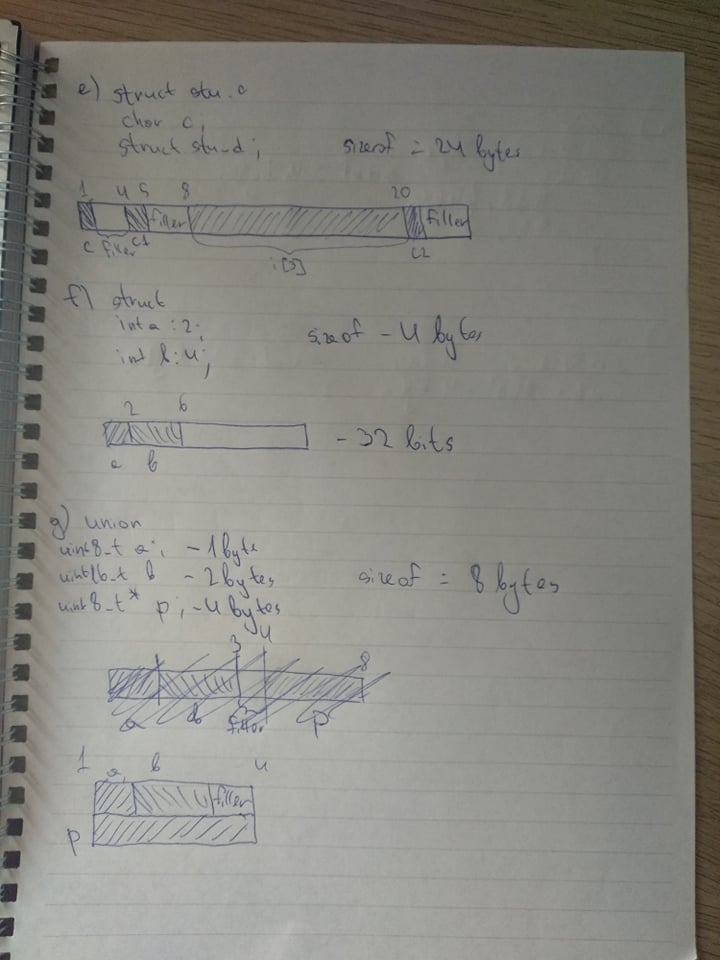 e) struct stu_c
char c;
struct stu_d; sizeof = 24 bytes
1 4 5 8 20
filler filler
c filler c1 i[3] c2
f) struct
int a : 2; sizeof - 4 bytes
int b : 4;
2 6
- 32 bits
a b
g) union
uint8_t a; - 1 byte
uint16_t b - 2 bytes sizeof = 8 bytes
uint8_t* p; - 4 bytes
3 4 8
a b filler p
1 a b 4
filler
p